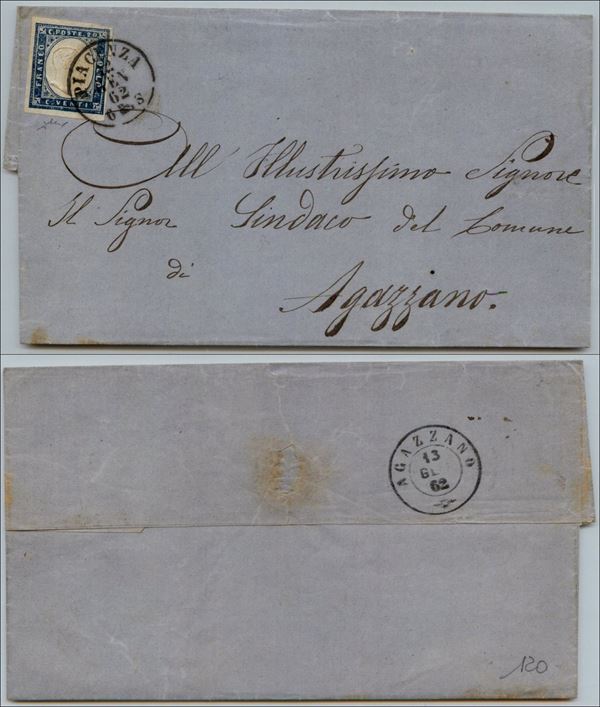 C. POSTE 20
FRANCO
BOLLO
C. VENTI
PIACENZA
62
8 S
All' Illustrissimo Signore
Il Signor Sindaco del Comune
di
Agazzano.
AGAZZANO
13
GE
62
120